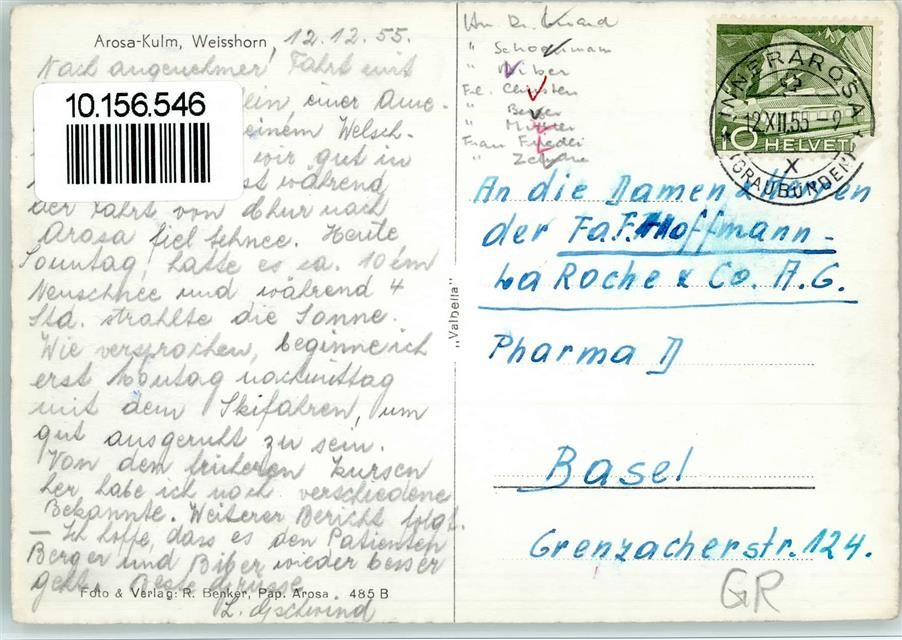 Arosa-Kulm, Weisshorn, 12.12.55.
Nach angenehmer Fahrt mit
10.156.546
lein einer Ame-
einem Welsch-
wir gut in
während
der Fahrt von Chur nach
Arosa fiel Schnee. Heute
Sonntag, hatte es ca. 10 cm
Neuschnee und während 4
Std. strahlte die Sonne.
Wie versprochen, beginne ich
erst Montag nachmittag
mit dem Skifahren, um
gut ausgeruht zu sein.
Von den früheren Kursen
her habe ich noch verschiedene
Bekannte. Weiterer Bericht folgt.
– Ich hoffe, dass es den Patienten
Berger und Biber wieder besser
geht. Beste Grüsse
Foto & Verlag: R. Benker, Pap. Arosa 485 B
L. Gschwind
„Valbella"
Hrn Dr.
"
" Biber
Frl. Christen
" Berger
"
Frau Friedli
"
INNERAROSA
12.XII.55-9
X
(GRAUBÜNDEN)
10 HELVETIA
An die Damen & Herren
der Fa. F. Hoffmann-
La Roche & Co. A.G.
Pharma D
Basel
Grenzacherstr. 124.
GR